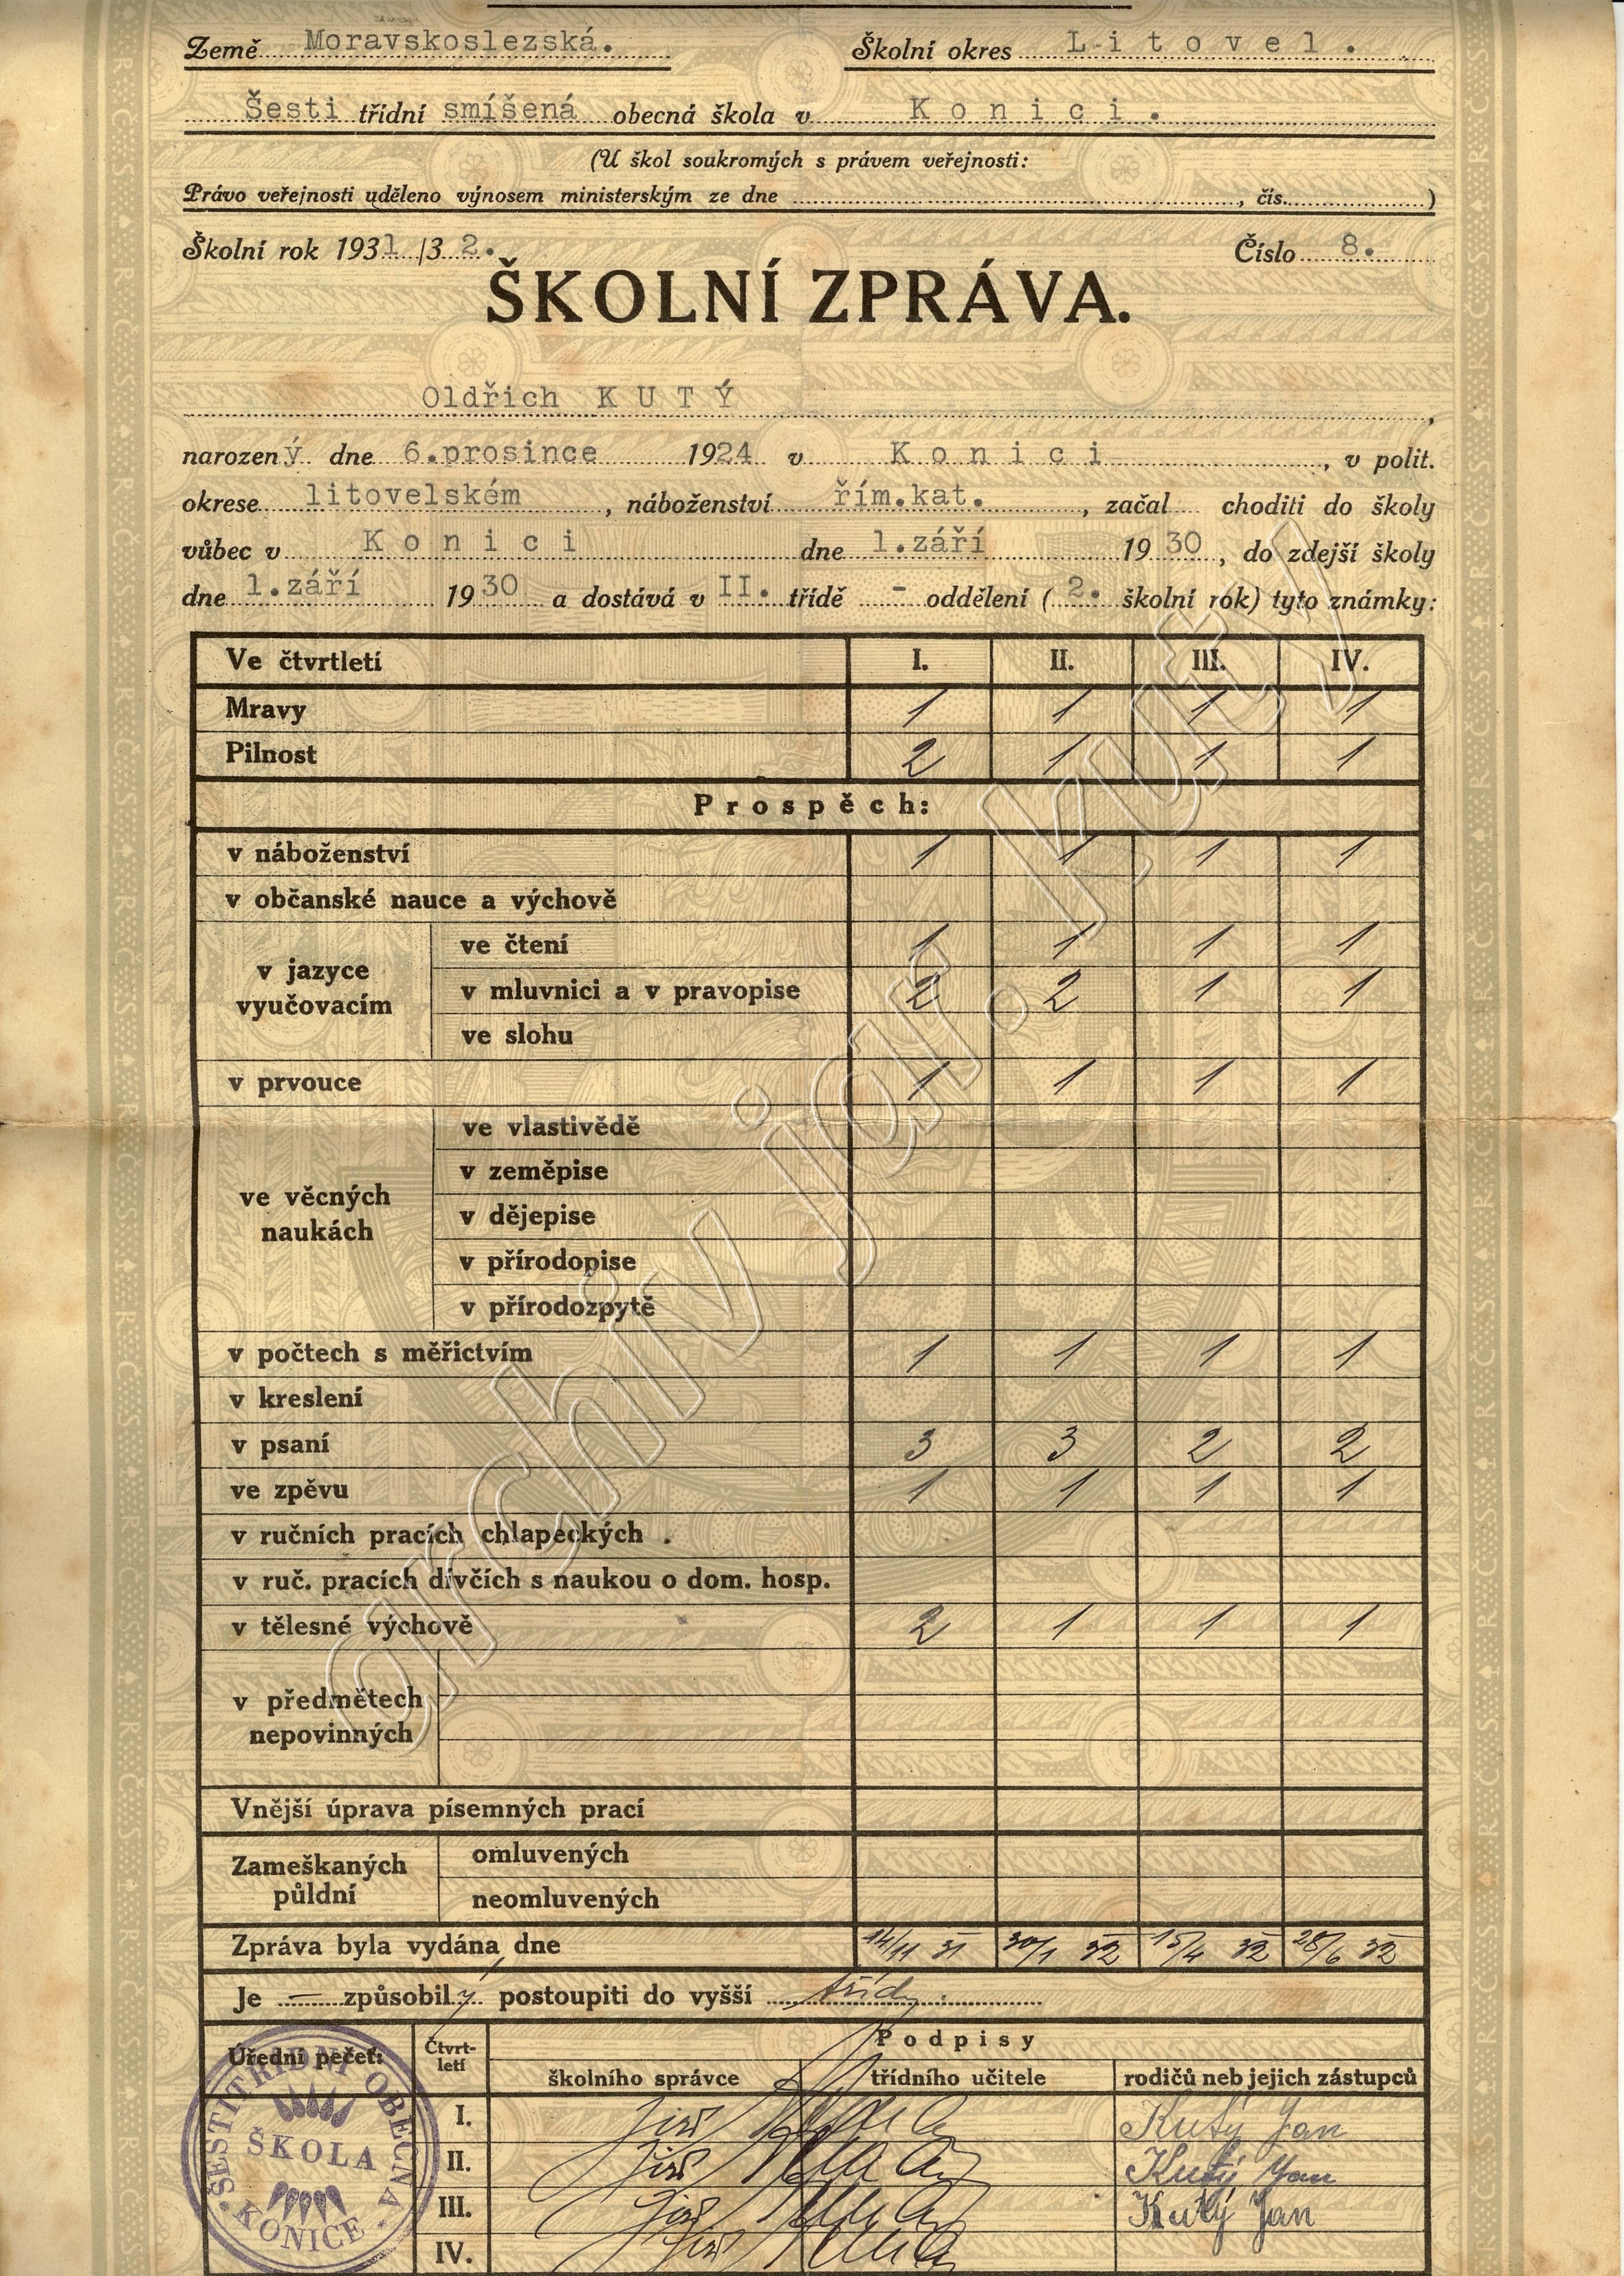 Země Moravskoslezská. Školní okres Litovel.
Šesti třídní smíšená obecná škola v Konici.
(U škol soukromých s právem veřejnosti:
Právo veřejnosti uděleno výnosem ministerským ze dne , čís. )
Školní rok 1931/32. Číslo 8.
ŠKOLNÍ ZPRÁVA.
Oldřich KUTÝ ,
narozený dne 6.prosince 1924 v Konici , v polit.
okrese litovelském , náboženství řím.kat. , začal choditi do školy
vůbec v Konici dne 1.září 1930 , do zdejší školy
dne 1.září 1930 a dostává v II. třídě - oddělení ( 2. školní rok) tyto známky:
Ve čtvrtletí I. II. III. IV.
Mravy 1 1 1 1
Pilnost 2 1 1 1
Prospěch:
v náboženství 1 1 1 1
v občanské nauce a výchově
v jazyce vyučovacím
ve čtení 1 1 1 1
v mluvnici a v pravopise 2 2 1 1
ve slohu
v prvouce 1 1 1 1
ve věcných naukách
ve vlastivědě
v zeměpise
v dějepise
v přírodopise
v přírodozpytě
v počtech s měřictvím 1 1 1 1
v kreslení
v psaní 3 3 2 2
ve zpěvu 1 1 1 1
v ručních pracích chlapeckých .
v ruč. pracích dívčích s naukou o dom. hosp.
v tělesné výchově 2 1 1 1
v předmětech nepovinných
Vnější úprava písemných prací
Zameškaných půldní
omluvených
neomluvených
Zpráva byla vydána dne 14/11 31 30/1 32 15/4 32 28/6 32
Je — způsobilý postoupiti do vyšší třídy.
Úřední pečeť: Čtvrtletí Podpisy
školního správce třídního učitele rodičů neb jejich zástupců
I. Kutý Jan
II. Kutý Jan
III. Kutý Jan
IV.
ŠESTITŘÍDNÍ OBECNÁ
ŠKOLA
KONICE
archiv jar. kutý